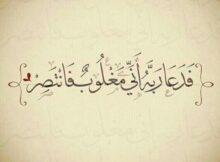 فَدَعَا رَبَّهُ أَنِّي مَغْلُوبٌ فَانتَصِرْ